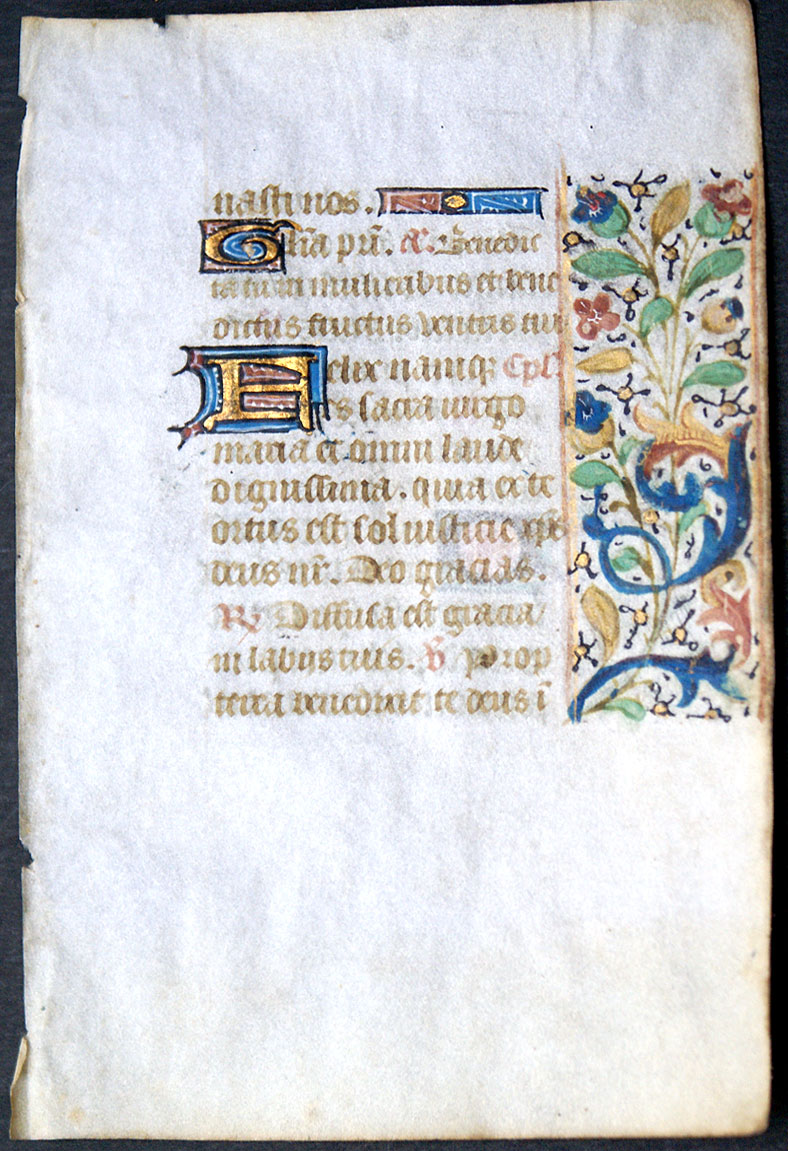 nasti nos.
Gl'ia pri. a. Benedic
ta tu in mulieribus et bene
dictus fructus ventris tui
Felix namq Cpl.
es sacra virgo
maria et omni laude
dignissima. quia ex te
ortus est sol iusticie xps
deus nr. Deo gracias.
R Diffusa est gracia
in labiis tuis. V prop
terea benedixit te deus i